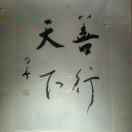 善行
天下